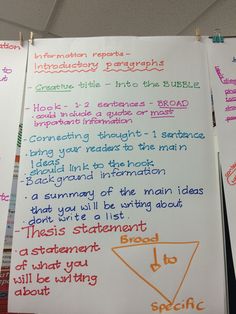 Information reports -
Introductory paragraphs
- Creative title - Into the BUBBLE
- Hook - 1-2 sentences - BROAD
- could include a quote or most
important information
- Connecting thought - 1 sentence
- bring your readers to the main
ideas
- should link to the hook
- Background information
- a summary of the main ideas
that you will be writing about
- don't write a list.
- Thesis statement
- a statement
of what you
will be writing
about
Broad
to
Specific